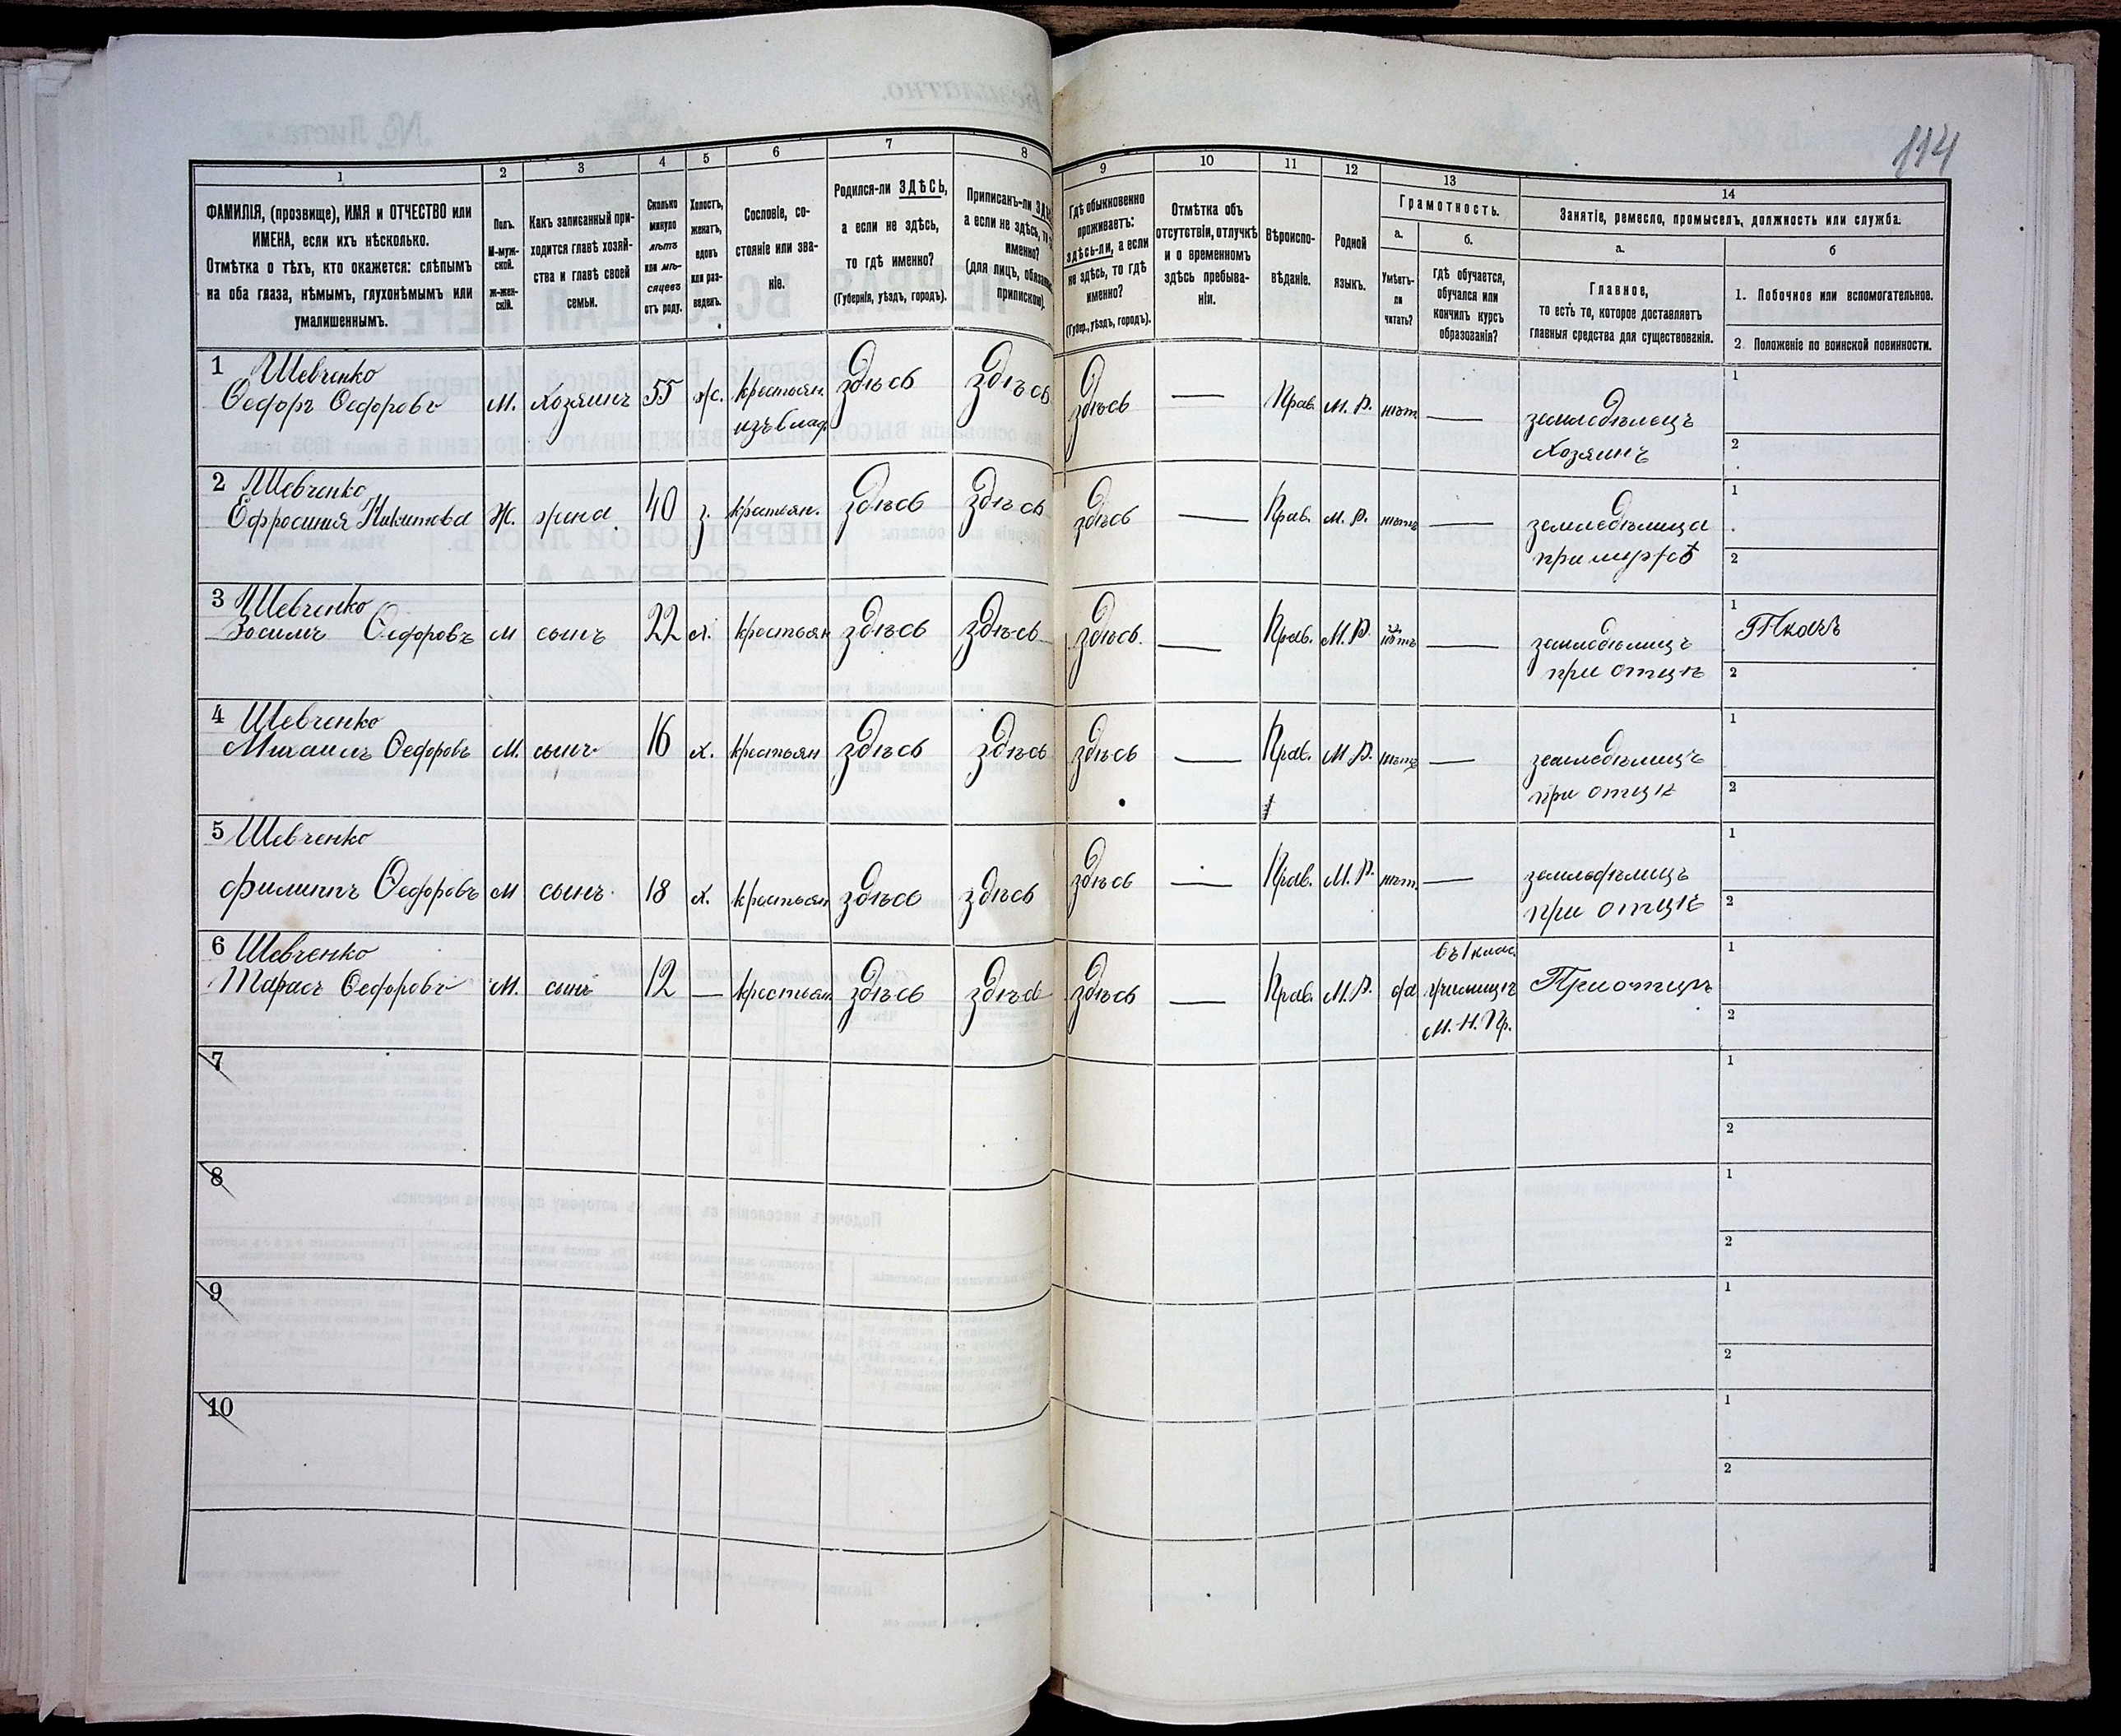 114
1
2
3
4
5
6
7
8
9
10
11
12
13
14
ФАМИЛІЯ, (прозвище), ИМЯ и ОТЧЕСТВО или
ИМЕНА, если ихъ нѣсколько.
Отмѣтка о тѣхъ, кто окажется: слѣпымъ
на оба глаза, нѣмымъ, глухонѣмымъ или
умалишеннымъ.
Полъ.
М-муж-
ской.
Ж-жен-
скій.
Какъ записанный при-
ходится главѣ хозяй-
ства и главѣ своей
семьи.
Сколько
минуло
лѣтъ
или мѣ-
сяцевъ
отъ роду.
Холостъ,
женатъ,
вдовъ
или раз-
веденъ.
Сословіе, со-
стояніе или зва-
ніе.
Родился-ли ЗДѢСЬ,
а если не здѣсь,
то гдѣ именно?
(Губернія, уѣздъ, городъ).
Приписанъ-ли
а если не здѣсь,
именно?
(для лицъ,
припискою).
Гдѣ обыкновенно
проживаетъ:
здѣсь-ли, а если
не здѣсь, то гдѣ
именно?
(Губер., уѣздъ, городъ).
Отмѣтка объ
отсутствіи, отлучкѣ
и о временномъ
здѣсь пребыва-
ніи.
Вѣроиспо-
вѣданіе.
Родной
языкъ.
Грамотность.
а.
Умѣетъ-
ли
читать?
б.
гдѣ обучается,
обучался или
кончилъ курсъ
образованія?
Занятіе, ремесло, промыселъ, должность или служба.
а.
Главное,
то есть то, которое доставляетъ
главныя средства для существованія.
б
1. Побочное или вспомогательное.
2. Положеніе по воинской повинности.
1 Шевченко
Ѳедоръ Ѳедоровъ М. Хозяинъ 55 ж. крестьян. здѣсь здѣсь здѣсь — Прав. М. Р. нѣт — земледѣлецъ 1
изъ влад. Хозяинъ 2
2 Шевченко
Ефросинія Никитова Ж. жена 40 з. крестьян. здѣсь здѣсь здѣсь — Прав. М. Р. нѣтъ — земледѣлица 1
при мужѣ 2
3 Шевченко
Зосимъ Ѳедоровъ М сынъ 22 х. крестьян здѣсь здѣсь здѣсь — Прав. М. Р. нѣтъ — земледѣлицъ 1 Ткачъ
при отцѣ 2
4 Шевченко
Михаилъ Ѳедоровъ М. сынъ 16 х. крестьян здѣсь здѣсь здѣсь — Прав. М. Р. нѣтъ — земледѣлицъ 1
при отцѣ 2
5 Шевченко
Филиппъ Ѳедоровъ М сынъ 18 х. крестьян здѣсь здѣсь здѣсь — Прав. М. Р. нѣт. — земледѣлицъ 1
при отцѣ 2
6 Шевченко въ 1 клас.
Тарасъ Ѳедоровъ М. сынъ 12 — крестьян здѣсь здѣсь здѣсь — Прав. М. Р. да училищѣ При отцѣ 1
М. Н. Пр. 2
7 1
2
8 1
2
9 1
2
10 1
2